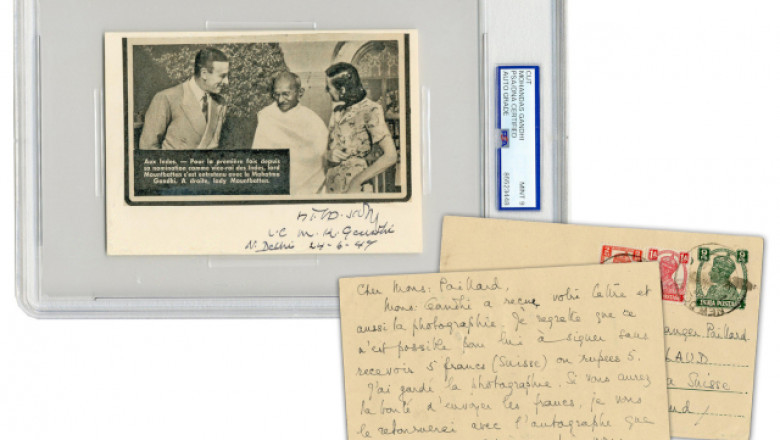 Aux Indes. — Pour la première fois depuis
sa nomination comme vice-roi des Indes, lord
Mountbatten s'est entretenu avec le Mahatma
Gandhi. A droite, lady Mountbatten.
M. K. Gandhi
N. Delhi 24-6-47
CUT
MOHANDAS GANDHI
PSA/DNA CERTIFIED
AUTO GRADE
MINT 9
INDIA POSTAGE
Cher Mons: Paillard,
Mons: Gandhi a reçu votre lettre et
aussi la photographie. Je regrette que ce
n'est possible pour lui à signer sans
recevoir 5 francs (Suisse) ou rupees 5.
J'ai gardé la photographie. Si vous aurez
la bonté d'envoyer les francs, je vous
le retournerai avec l'autographe que
anger Paillard
LAUD
a Suisse